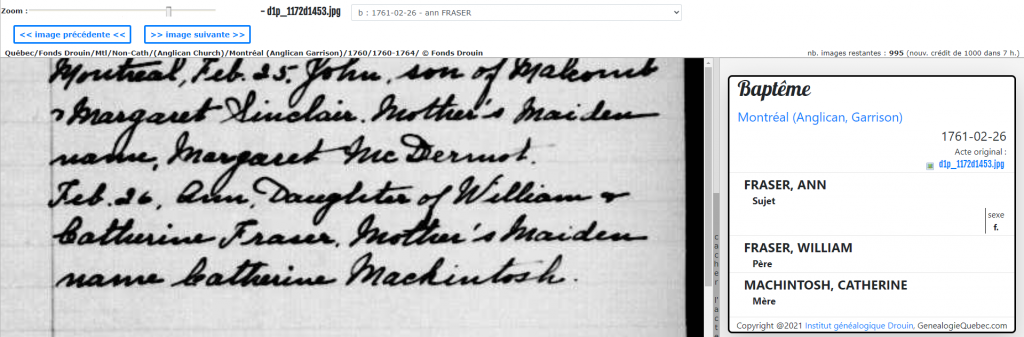 Zoom :
- d1p_1172d1453.jpg
b : 1761-02-26 - ann FRASER
<< image précédente <<
>> image suivante >>
Québec/Fonds Drouin/Mtl/Non-Cath/(Anglican Church)/Montréal (Anglican Garrison)/1760/1760-1764/ © Fonds Drouin
nb. images restantes : 995 (nouv. crédit de 1000 dans 7 h.)
Montreal, Feb. 25, John, son of Malcomb
& Margaret Sinclair. Mother's Maiden
name, Margaret McDermot.
Feb. 26, Ann, Daughter of William &
Catherine Fraser. Mother's Maiden
name Catherine Mackintosh.
cacher l'acte
Baptême
Montréal (Anglican, Garrison)
1761-02-26
Acte original :
d1p_1172d1453.jpg
FRASER, ANN
Sujet
sexe
f.
FRASER, WILLIAM
Père
MACHINTOSH, CATHERINE
Mère
Copyright @2021 Institut généalogique Drouin, GenealogieQuebec.com